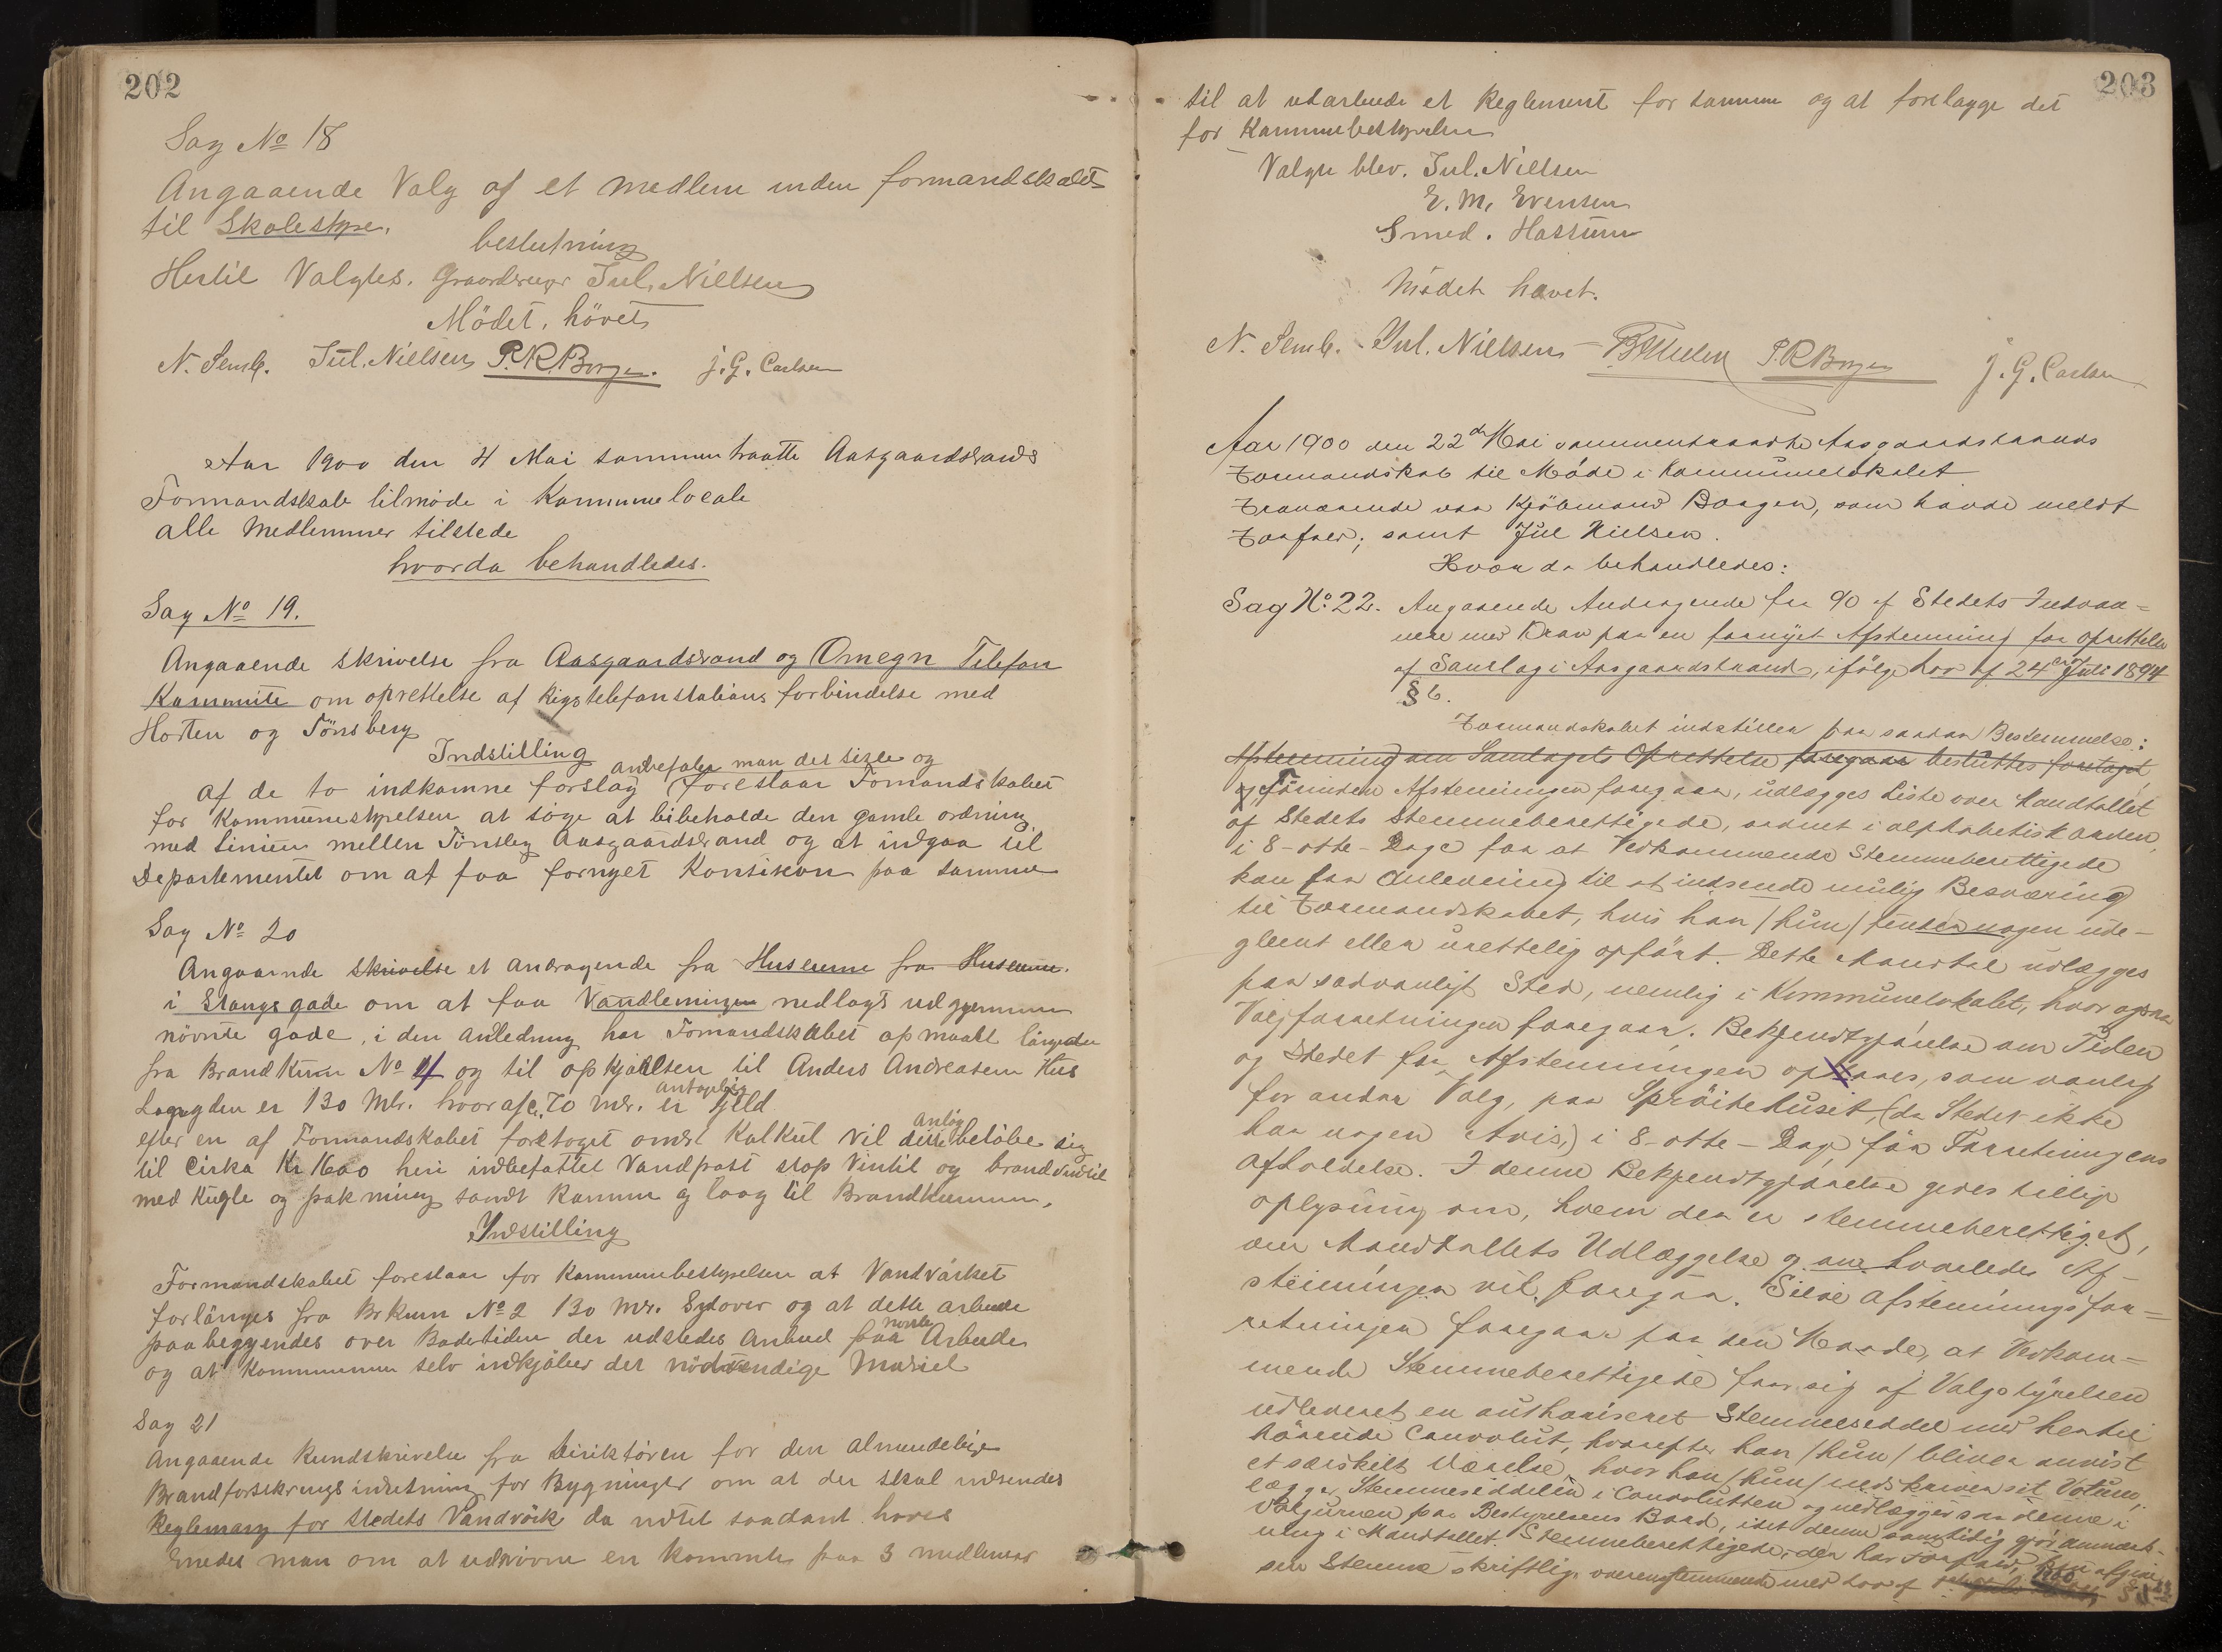 202
Sag No 18
Angaaende Valg af et medlem inden formandskabet
til Skolestyre.
beslutning
Hertil Valgtes. Gaardbruger Jul. Nielsen
Mödet hövet
N. Semb. Jul. Nielsen P.R. Borgen. J. G. Carlsen
Aar 1900 den 4 Mai sammentraatte Aasgaardstrands
Formandskab tilmøde i Kommunelocale
alle Medlemmer tilstede
hvorda behandledes.
Sag No 19.
Angaaende skrivelse fra Aasgaardstrand og Omegn Telefon
Kommite om oprettelse af Rigstelefonstations forbindelse med
Horten og Tönsberg
Indstilling
anbefaler man det sidste og
af de to indkomne forslag forestaar Fomandskabet
for Kommunestyrelsen at söge at bibeholde den gamle ordning
med Linien mellem Tönsberg Aasgaardstrand og at indgaa til
Departementet om at faa fornyet Konsision paa samme
Sag No 20
Angaaende skrivelse et andragende fra Huseierne fra Huseierne
i Stangsgade om at faa Vandledningen nedlagt udgjennem
növnte gade, i den anledning har Fomandskabet opmaalt längden
fra Brandkum No 4 og til opkjørselsen til Anders Andreasens Hus
Længden er 130 Mtr. hvoraf c. 70 mtr. er antagelig fjeld
efter en af Formandskabet foretaget Kalkul vil dette anlög belöbe sig
til Cirka Kr 1600 heri indbefattet Vandpost stop Ventil og brandventil
med Kugle og pakning samt Ramme og laag til Brandkummen.
Indstilling
Formandskabet forestaar for Kommunebestyrelsen at Vandvärket
forlänges fra Br kum No 2 130 mtr. Sydover og at dette arbeide
paabegyndes over Badetiden der udstedes Anbud paa Arbeide
og at Kommunen selv indkjøber det nödvendige Matriel
Sag 21
Angaaende Rundskrivelse fra Direktören for den almindelige
Brandforsikrings indretning for Bygninger om at der skal indsendes
Reglemang for stedets Vandvörk da intet saadant haves
Enedes man om at udnövne en Kommite paa 3 medlemer
203
til at udarbeide et Reglement for samme og at forelagge det
for Kommunebestyrelsen
Valgte blev. Jul. Nielsen
E. M. Evensen
Smed. Hassum
Mødet hævet.
N. Semb. Jul. Nielsen P. R Borgen J. G. Carlsen
Aar 1900 den 22de Mai sammentraadte Aasgaardstrands
Formandskab til Møde i Kommunelokalet
Fraværende var Kjøbmand Borgen, som havde meldt
Forfald; samt Jul Nielsen.
Hvor da behandledes:
Sag No. 22. Angaaende Andragende fra 90 af Stedets Indvaa=
nere med Krav paa en fornyet Afstemning for Oprettelse
af Samlag i Aasgaardstrand, ifølge Lov af 24de Juli 1894
§ 6.
Formandskabet indstiller paa saadan Bestemmelse:
Afstemning om Samlagets Oprettelse foregaar besluttes foretaget
og Förinden Afstemningen foregaar, udlægges Liste over Mandtallet
af Stedets Stemmeberettigede, ordnet i alphabetisk Orden,
i 8-otte- Dage for at Vedkommende Stemmeberettigede
kan faa Anledning til at indsende mulig Besværing
til Formandskabet, hvis han /hun/ finder nogen ude-
glemt eller urettelig opført. Dette Mandtal udlægges
paa sædvanligt Sted, nemlig i Kommunelokalet, hvor ogsaa
Valgforretningen foregaar. Bekjendtgjörelse om Tiden
og Stedet for Afstemningen opslaaes, som vanlig
for andre Valg, paa Spröitehuset, (da Stedet ikke
har nogen Avis,) i 8-otte- Dage för Forretningens
Afholdelse. I denne Bekjendtgjørelse gives tillige
oplysning om, hvem der er stemmeberettiget,
om Mandtallets Udlæggelse og om hvorledes Af-
stemningen vil foregaa. Selve Afstemningsfor=
retningen foregaar paa den Maade, at Vedkom=
mende Stemmeberettigede faar sig af Valgstyrelsen
udleveret en authoriseret Stemmeseddel med hertil
hørende Convolut, hvorefter han /hun/ bliver anvist
et særskilt Værelse, hvor han /hun/ nedskriver sit Votum,
lægger Stemmeseddelen i Convolutten og nedlægges saa denne i
Valgurnen paa Bestyrelsens Bord, idet denne samtidig gjør anmærk-
ning i Mandtallet. Stemmeberettigede, der har Forfald, kan afgive
sin Stemme skriftlig overensstemmende med Lov af